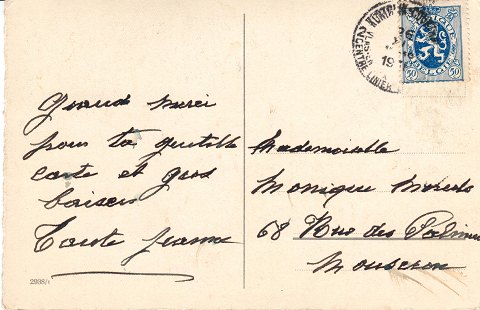 Grand merci
pour ta gentille
carte et gros
baisers
Tante Jeanne
Mademoiselle
Monique
68 Rue des
Mouscron
2938/1
KORTRIJK
CENTRE LINIER
19
BELGIQUE
BELGIË
50 50